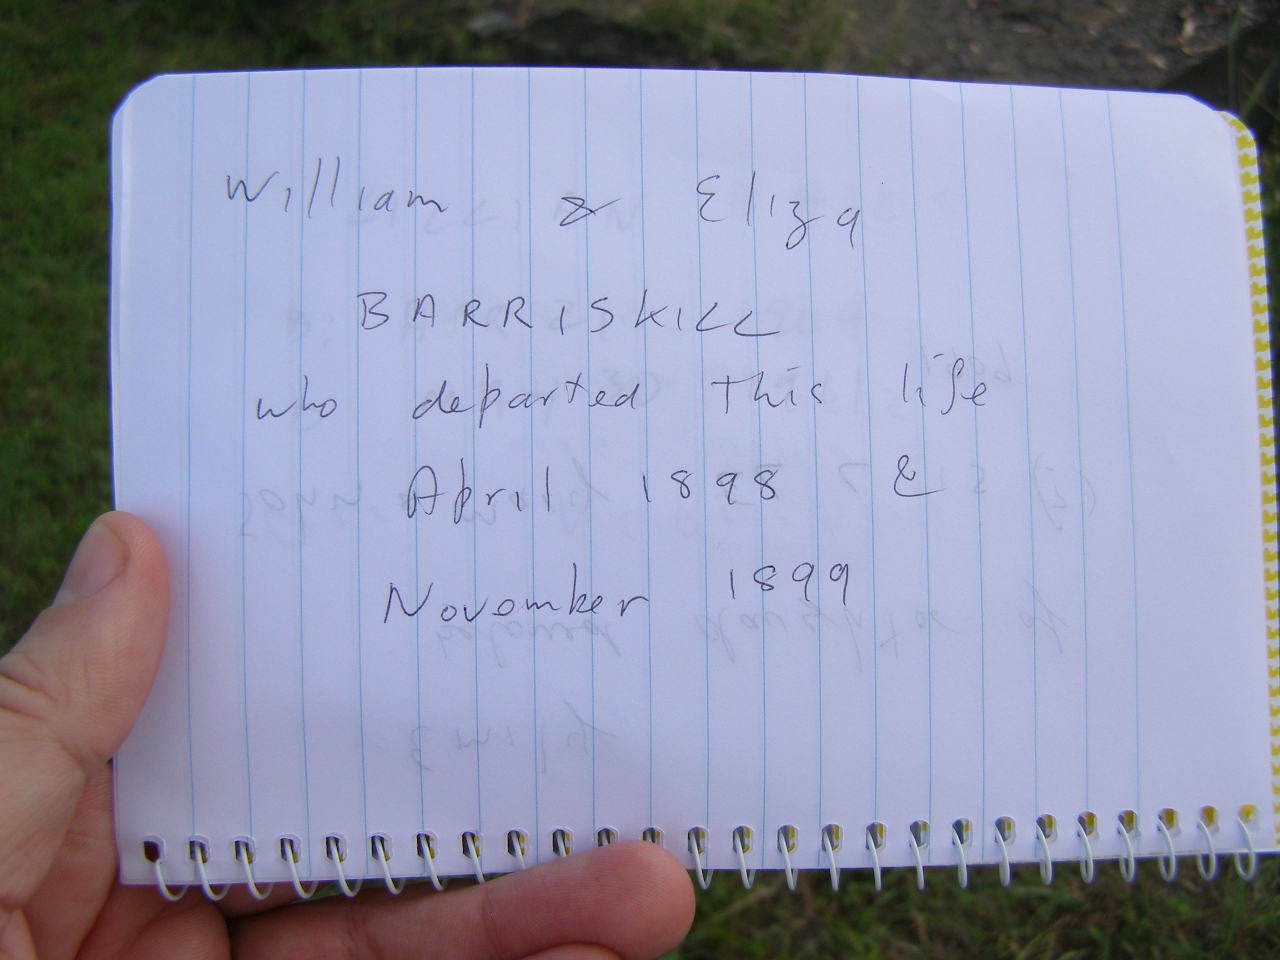 William & Eliza
BARRISKILL
who departed this life
April 1898 &
November 1899